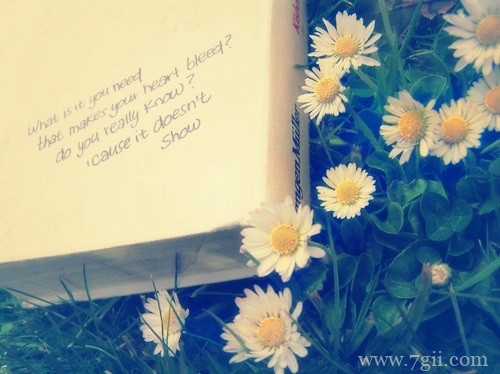 What is it you need
that makes your heart bleed?
do you really know?
'cause it doesn't
show
www.7gii.com